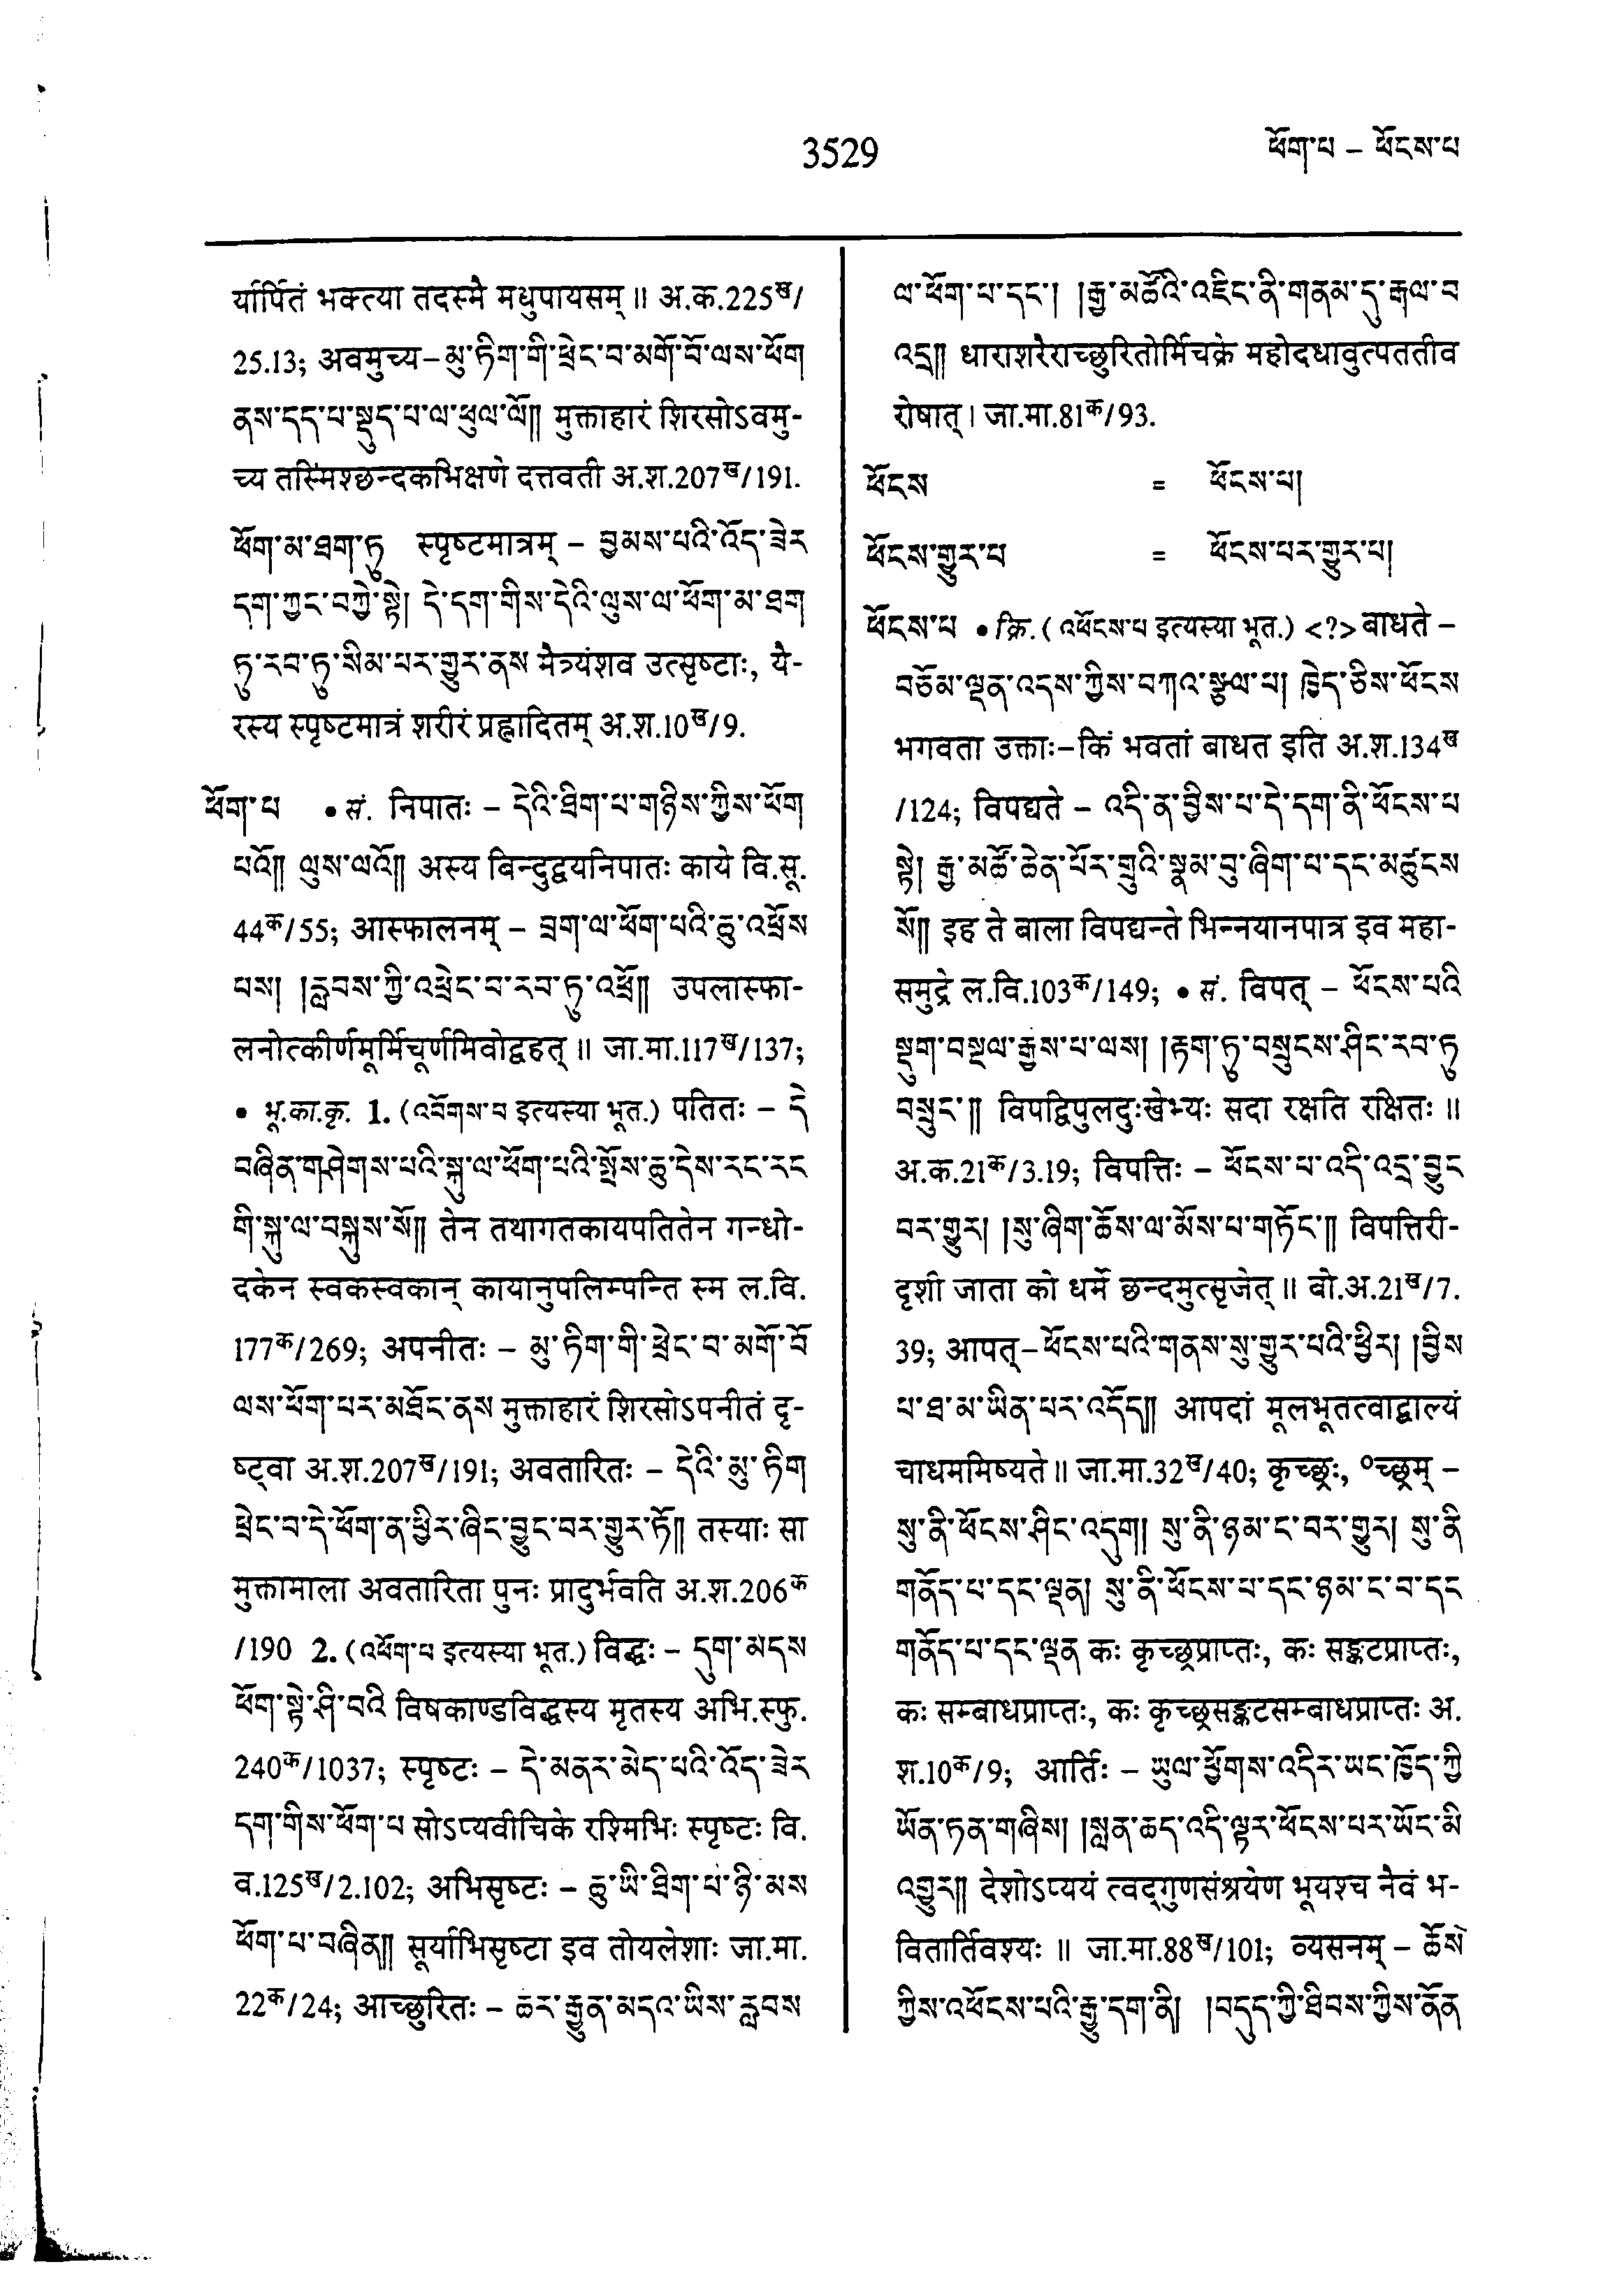 3529
ཕོག་པ – ཕོངས་པ
र्यार्पितं भक्त्या तदस्मै मधुपायसम् ॥ अ.क.225ख/
25.13; अवमुच्य–མུ་ཏིག་གི་ཕྲེང་བ་མགོ་བོ་ལས་ཕོག
ནས་དད་པ་སྡུད་པ་ལ་ཕུལ་ལོ།། मुक्ताहारं शिरसोऽवमु-
च्य तस्मिंश्छन्दकभिक्षणे दत्तवती अ.श.207ख/191.
ཕོག་མ་ཐག་ཏུ स्पृष्टमात्रम् – བྱམས་པའི་འོད་ཟེར
དག་ཀྱང་བཀྱེ་སྟེ། དེ་དག་གིས་དེའི་ལུས་ལ་ཕོག་མ་ཐག
ཏུ་རབ་ཏུ་སིམ་པར་གྱུར་ནས मैत्र्यंशव उत्सृष्टाः, यै-
रस्य स्पृष्टमात्रं शरीरं प्रह्लादितम् अ.श.10ख/9.
ཕོག་པ • सं. निपातः – དེའི་ཐིག་པ་གཉིས་ཀྱིས་ཕོག
པའོ།། ལུས་ལའོ།། अस्य बिन्दुद्वयनिपातः काये वि.सू.
44क/55; आस्फालनम् – བྲག་ལ་ཕོག་པའི་ཆུ་འཕྲོས
པས། །རླབས་ཀྱི་འཕྲེང་བ་རབ་ཏུ་འཕྲོ།། उपलास्फा-
लनोत्कीर्णमूर्मिचूर्णमिवोद्वहत् ॥ जा.मा.117ख/137;
• भू.का.कृ. 1. (འབོགས་པ इत्यस्या भूत.) पतितः – དེ
བཞིན་གཤེགས་པའི་སྐུ་ལ་ཕོག་པའི་སྤོས་ཆུ་དེས་རང་རང
གི་སྐུ་ལ་བསྐུས་སོ།། तेन तथागतकायपतितेन गन्धो-
दकेन स्वकस्वकान् कायानुपलिम्पन्ति स्म ल.वि.
177क/269; अपनीतः – མུ་ཏིག་གི་ཕྲེང་བ་མགོ་བོ
ལས་ཕོག་པར་མཐོང་ནས मुक्ताहारं शिरसोऽपनीतं दृ-
ष्ट्वा अ.श.207ख/191; अवतारितः – དེའི་མུ་ཏིག
ཕྲེང་བ་དེ་ཕོག་ན་ཕྱིར་ཞིང་བྱུང་བར་གྱུར་ཏོ།། तस्याः सा
मुक्तामाला अवतारिता पुनः प्रादुर्भवति अ.श.206क
/190 2. (འཕོག་པ इत्यस्या भूत.) विद्धः – དུག་མདས
ཕོག་སྟེ་ཤི་བའི विषकाण्डविद्धस्य मृतस्य अभि.स्फु.
240क/1037; स्पृष्टः – དེ་མནར་མེད་པའི་འོད་ཟེར
དག་གིས་ཕོག་པ सोऽप्यवीचिके रश्मिभिः स्पृष्टः वि.
व.125ख/2.102; अभिसृष्टः – ཆུ་ཡི་ཐིག་པ་ཉི་མས
ཕོག་པ་བཞིན།། सूर्याभिसृष्टा इव तोयलेशाः जा.मा.
22क/24; आच्छुरितः – ཆར་རྒྱུན་མདའ་ཡིས་རླབས
ལ་ཕོག་པ་དང་། །རྒྱ་མཚོའི་འཇིང་ནི་གནམ་དུ་རྒལ་བ
འདྲ།། धाराशरैराच्छुरितोर्मिचक्रे महोदधावुत्पततीव
रोषात् । जा.मा.81क/93.
ཕོངས = ཕོངས་པ།
ཕོངས་གྱུར་པ = ཕོངས་པར་གྱུར་པ།
ཕོངས་པ • क्रि. (འཕོངས་པ इत्यस्या भूत.) <?> बाधते –
བཅོམ་ལྡན་འདས་ཀྱིས་བཀའ་སྩལ་པ། ཁྱེད་ཅིས་ཕོངས
भगवता उक्ताः–किं भवतां बाधत इति अ.श.134ख
/124; विपद्यते – འདི་ན་བྱིས་པ་དེ་དག་ནི་ཕོངས་པ
སྟེ། རྒྱ་མཚོ་ཆེན་པོར་གྲུའི་སྣམ་བུ་ཞིག་པ་དང་མཚུངས
སོ།། इह ते बाला विपद्यन्ते भिन्नयानपात्र इव महा-
समुद्रे ल.वि.103क/149; • सं. विपत् – ཕོངས་པའི
སྡུག་བསྔལ་རྒྱས་པ་ལས། །རྟག་ཏུ་བསྲུངས་ཤིང་རབ་ཏུ
བསྲུང་།། विपद्विपुलदुःखेभ्यः सदा रक्षति रक्षितः ॥
अ.क.21क/3.19; विपत्तिः – ཕོངས་པ་འདི་འདྲ་བྱུང
བར་གྱུར། །སུ་ཞིག་ཆོས་ལ་མོས་པ་གཏོང་།། विपत्तिरी-
दृशी जाता को धर्मे छन्दमुत्सृजेत् ॥ बो.अ.21ख/7.
39; आपत्–ཕོངས་པའི་གནས་སུ་གྱུར་པའི་ཕྱིར། །བྱིས
པ་ཐ་མ་ཡིན་པར་འདོད།། आपदां मूलभूतत्वाद्बाल्यं
चाधममिष्यते ॥ जा.मा.32ख/40; कृच्छ्रः, ०च्छ्रम् –
སུ་ནི་ཕོངས་ཤིང་འདུག། སུ་ནི་ཉམ་ང་བར་གྱུར། སུ་ནི
གནོད་པ་དང་ལྡན། སུ་ནི་ཕོངས་པ་དང་ཉམ་ང་བ་དང
གནོད་པ་དང་ལྡན कः कृच्छ्रप्राप्तः, कः सङ्कटप्राप्तः,
कः सम्बाधप्राप्तः, कः कृच्छ्रसङ्कटसम्बाधप्राप्तः अ.
श.10क/9; आर्तिः – ཡུལ་ཕྱོགས་འདིར་ཡང་ཁྱོད་ཀྱི
ཡོན་ཏན་གཞིས། །སླན་ཆད་འདི་ལྟར་ཕོངས་པར་ཡོང་མི
འགྱུར།། देशोऽप्ययं त्वद्गुणसंश्रयेण भूयश्च नैवं भ-
वितार्तिवश्यः ॥ जा.मा.88ख/101; व्यसनम् – ཆོས
ཀྱིས་འཕོངས་པའི་རྒྱུ་དག་ནི། །བདུད་ཀྱི་ཐིབས་ཀྱིས་ནོན